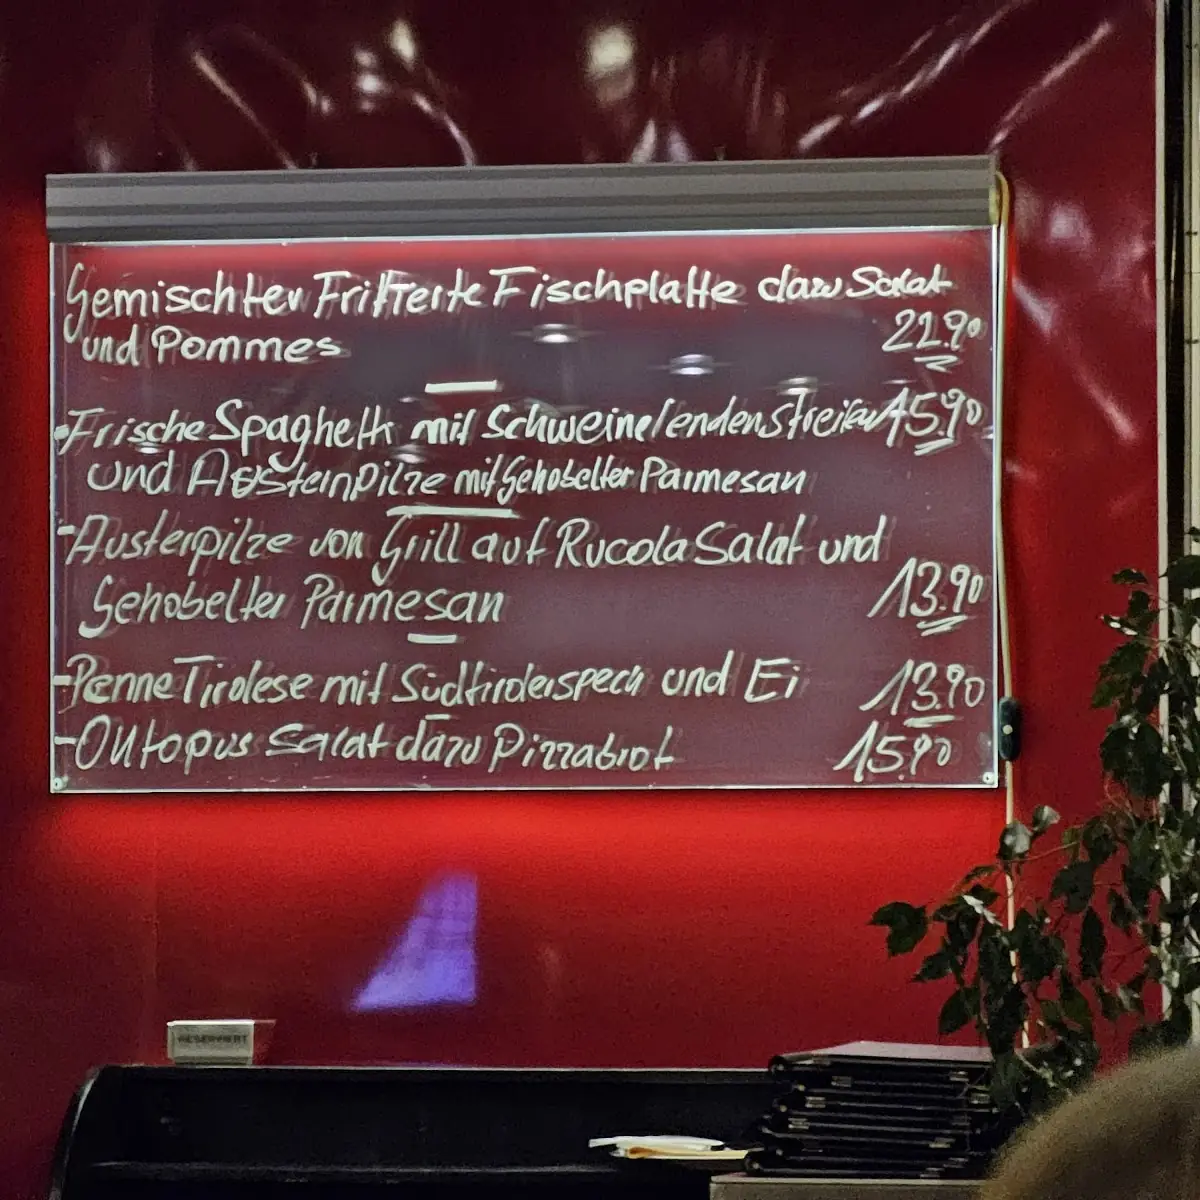 Gemischter Frittierte Fischplatte dazu Salat
und Pommes 22.90
-Frische Spaghetti mit Schweinelendenstreifen 15.90
und Austernpilze mit Gehobelter Parmesan
-Austerpilze von Grill auf Rucola Salat und
Gehobelter Parmesan 13.90
-Penne Tirolese mit Südtirolerspeck und Ei 13.90
-Oktopus Salat dazu Pizzabrot 15.90
RESERVIERT